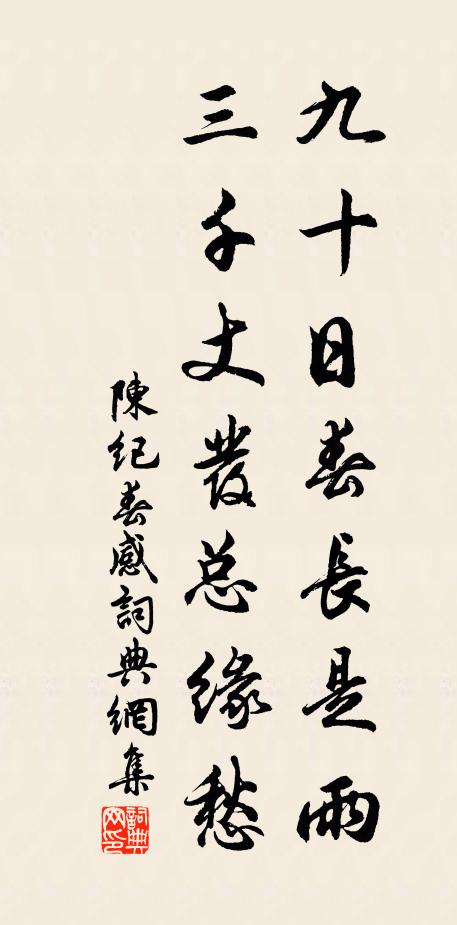 九十日春長是雨
三千丈發总緣愁
陳紀春感詞典網集
詞典网印